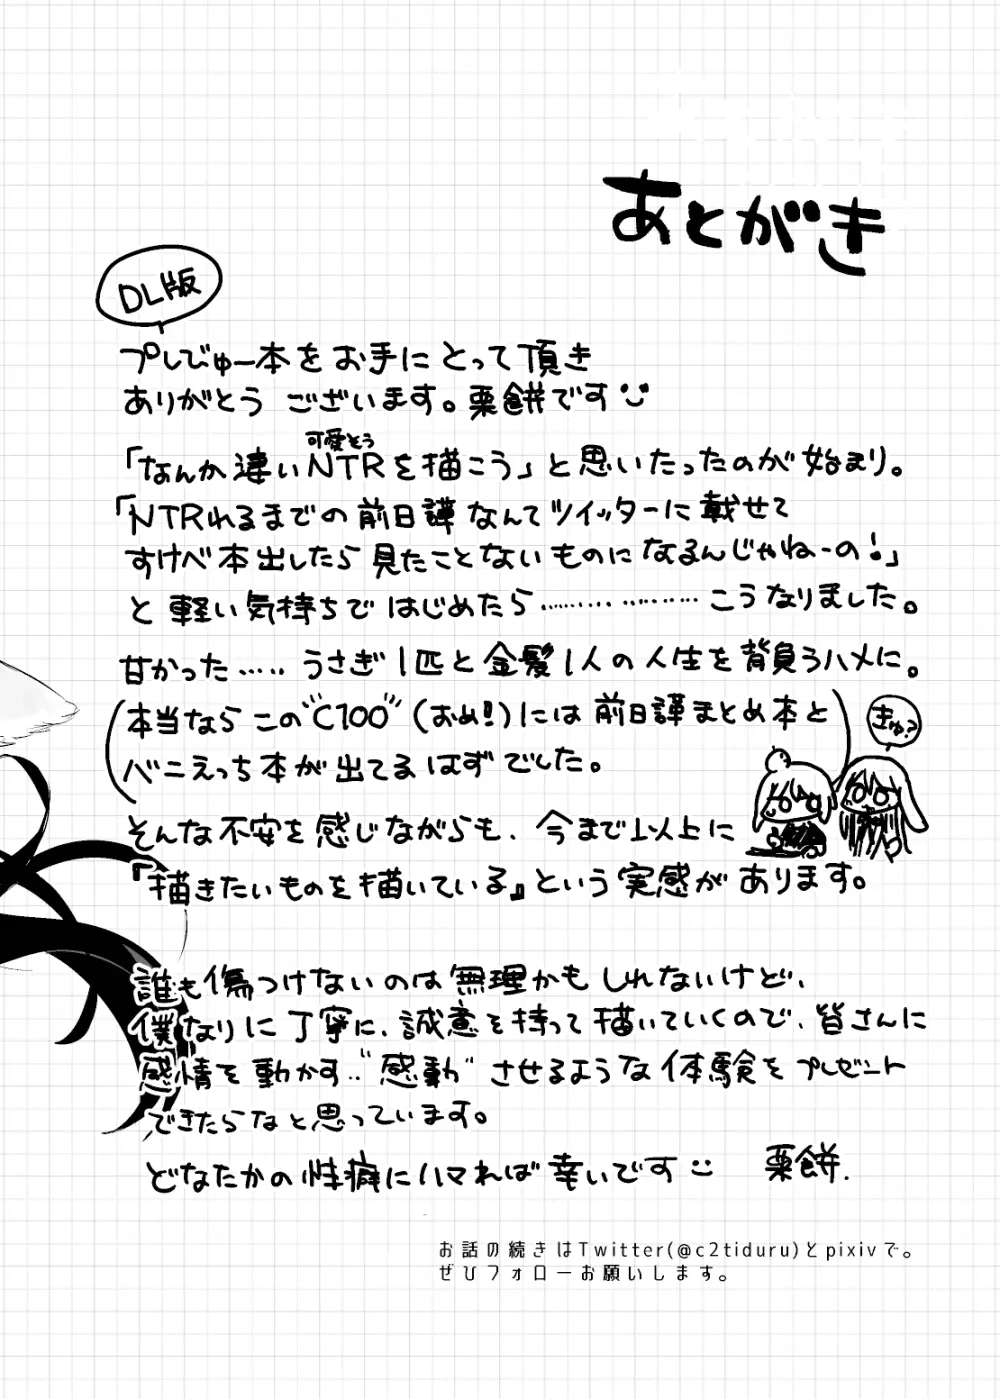 あとがき
DL版
プレびゅー本をお手にとって頂き
ありがとうございます。栗餅です
可愛そう
「なんか違いNTRを描こう」と思いたったのが始まり。
「NTRれるまでの前日譚なんてツイッターに載せて
すけべ本出したら見たことないものになるんじゃねーの!」
と軽い気持ちではじめたら……………こうなりました。
甘かった……うさぎ1匹と金髪1人の人生を背負うハメに。
(本当ならこの"C100"(おめ!)には前日譚まとめ本と
バニえっち本が出てるはずでした。)
きゅ?
そんな不安を感じながらも、今まで以上に
『描きたいものを描いている』という実感があります。
誰も傷つけないのは無理かもしれないけど、
僕なりに丁寧に、誠意を持って描いていくので、皆さんに
感情を動かす"感動"させるような体験をプレゼント
できたらなと思っています。
どなたかの性癖にハマれば幸いです
栗餅.
お話の続きはTwitter(@c2tiduru)とpixivで。
ぜひフォローお願いします。